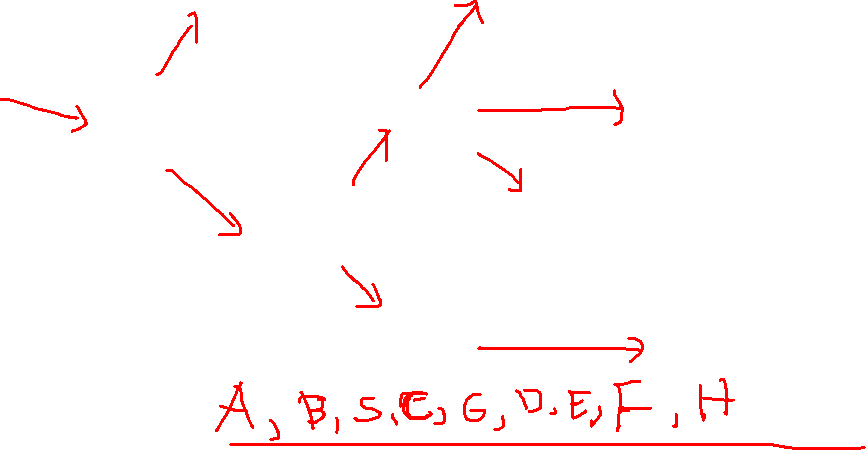 A, B, S, C, G, D, E, F, H